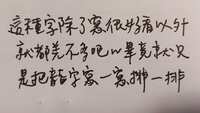 這種字除了寫很好看以外
就都差不多吧以畢竟就只
是把龍字寫一寫排一排